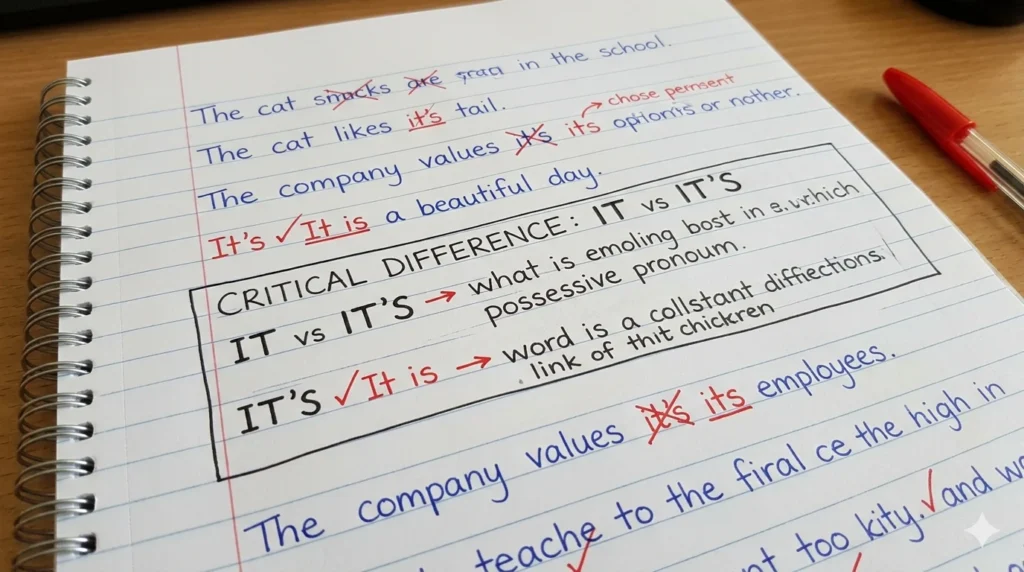 The cat snacks are in the school.
The cat likes it's tail.
chose pemsent
The company values it's its options or nother.
It's ✓ It is a beautiful day.
CRITICAL DIFFERENCE: IT vs IT'S
IT vs IT'S → what is emoling bost in e.vrhich
possessive pronoum.
IT'S ✓ It is → word is a collstant diffiections.
link of thit chickren
The company values it's its employees.
teache to the firal ce the high in
too kity. ✓ and